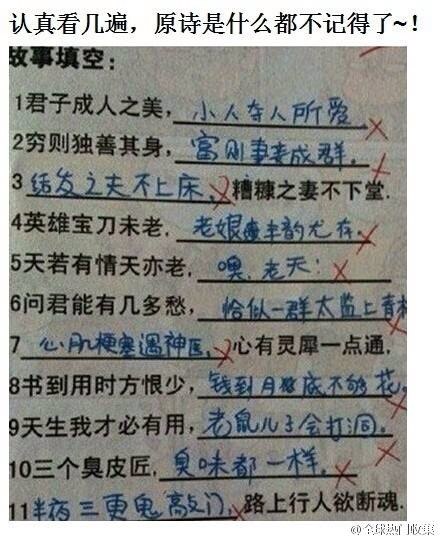 认真看几遍，原诗是什么都不记得了~！
故事填空：
1君子成人之美，小人夺人所爱
2穷则独善其身，富则妻妾成群。
3结发之夫不上床，糟糠之妻不下堂.
4英雄宝刀未老，老娘丰韵尤存。
5天若有情天亦老，噢，老天！
6问君能有几多愁，恰似一群太监上青
7心肌梗塞遇神医，心有灵犀一点通，
8书到用时方恨少，钱到月底不够花。
9天生我才必有用，老鼠儿子会打洞。
10三个臭皮匠，臭味都一样，
11半夜三更鬼敲门，路上行人欲断魂.
@全球热门收集